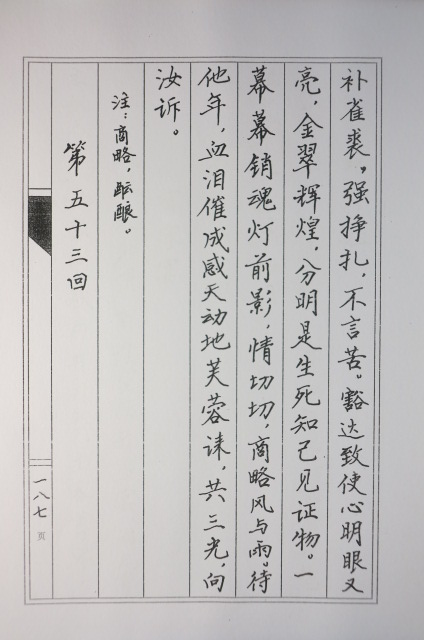 补雀裘。强挣扎，不言苦。豁达致使心明眼又
亮，金翠辉煌，分明是生死知己见证物。一
幕幕销魂灯前影，情切切，商略风与雨。待
他年，血泪催成感天动地芙蓉诔，共三光，向
汝诉。
注：商略，酝酿。
第五十三回
一八七页